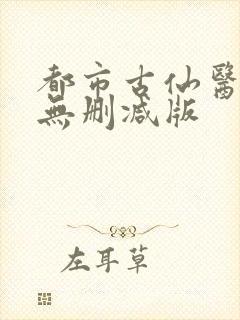 都市古仙醫
無刪減版
左耳草